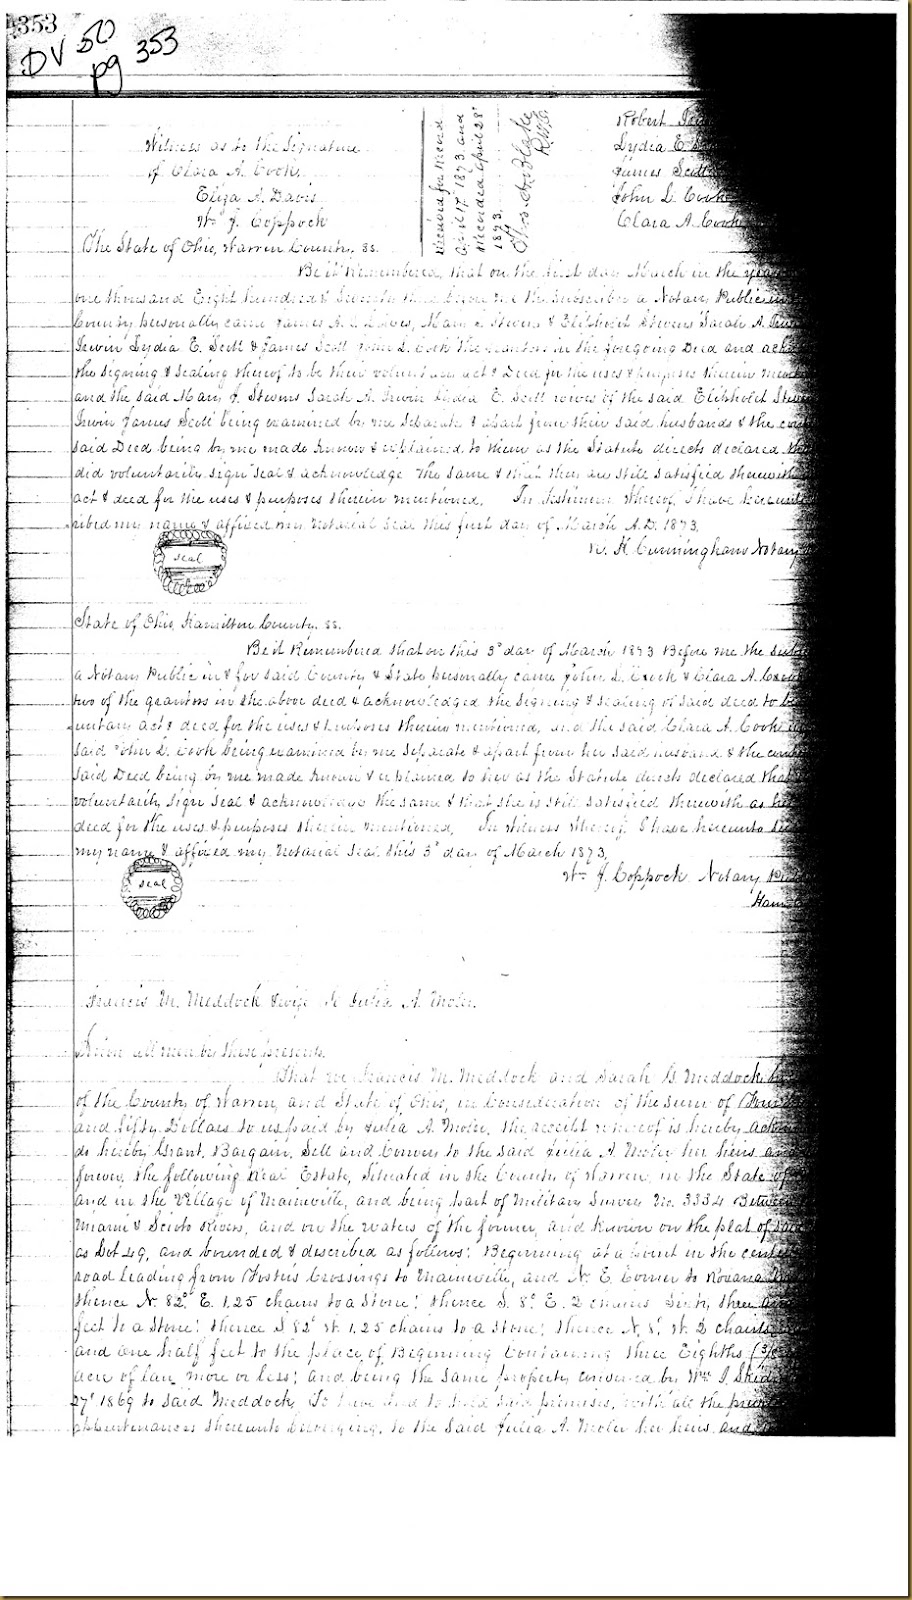 353
DV 50
pg 353
Robert
Lydia E.
James Scott
John L. Cook
Clara A. Cook
Witness as to the Signature
of Clara A. Cook.
Eliza A. Davis
Wm J. Coppock
Received for Record
April 17th 1873 and
Recorded April 28th
1873.
The State of Ohio, Warren County, ss.
Be it Remembered, that on the first day March in the year
one thousand Eight hundred & Seventy three before me the subscriber a Notary Public in
County personally came James A. Mary J. Stevens & Eliphalet Stevens Sarah A.
Irwin Lydia E. Scott & James Scott John L. Cook the grantors in the foregoing Deed and
the signing & sealing thereof to be their voluntary act & Deed for the uses & purposes therein
and the said Mary J. Stevens Sarah A. Irwin Lydia E. Scott wives of the said Eliphalet
Irwin James Scott being examined by me Separate & apart from their said husbands & the
said Deed being by me made known & explained to them as the Statute directs declared
did voluntarily sign seal & acknowledge the same & that they are still satisfied therewith
act & deed for the uses & purposes therein mentioned. In testimony whereof, I have
my name & affixed my Notarial Seal this first day of March A.D. 1873.
W. H. Cunningham Notary
seal
State of Ohio, Hamilton County, ss.
Be it Remembered that on this 3d day of March 1873 Before me the
a Notary Public in & for said County & State personally came John L. Cook & Clara A.
two of the grantors in the above deed & acknowledged the signing & sealing of said deed to
act & deed for the uses & purposes therein mentioned, and the said Clara A. Cook
said John L. Cook being examined by me Separate & apart from her said husband & the
said Deed being by me made known & explained to her as the Statute directs declared that
voluntarily sign Seal & acknowledge the same & that she is still satisfied therewith as
deed for the uses & purposes therein mentioned, In witness whereof, I have hereunto
my name & affixed my Notarial Seal this 3d day of March 1873.
Wm J. Coppock Notary
seal
Francis M. Meddock & wife To Julia A. Moler.
Know all men by these presents.
That we Francis M. Meddock and Sarah G. Meddock
of the County of Warren, and State of Ohio, in Consideration of the sum of
and fifty Dollars to us paid by Julia A. Moler, the receipt whereof is hereby
do hereby Grant, Bargain, Sell and Convey to the said Julia A. Moler her heirs and
forever, the following Real Estate, Situated in the County of Warren, in the State of
and in the Village of Maineville, and being part of Military Survey No. 3334
Miami & Scioto Rivers, and on the waters of the former, and known on the plat of
as Lot 49, and bounded & described as follows: Beginning at a point in the
road leading from Foster's Crossings to Maineville, and N. E. Corner to Roxana
thence N. 82° E. 1.25 chains to a Stone; thence S. 8° E. 2 chains Sixty three and
feet to a Stone; thence S 82° W. 1.25 chains to a Stone; thence N. 8° W. 2 chains
and one half feet to the place of Beginning Containing three Eighths
acre of land more or less; and being the same property conveyed by Wm I.
27th 1869 to said Meddock, To have and to hold said premises, with all the
appurtenances thereunto belonging, to the Said Julia A. Moler her heirs and